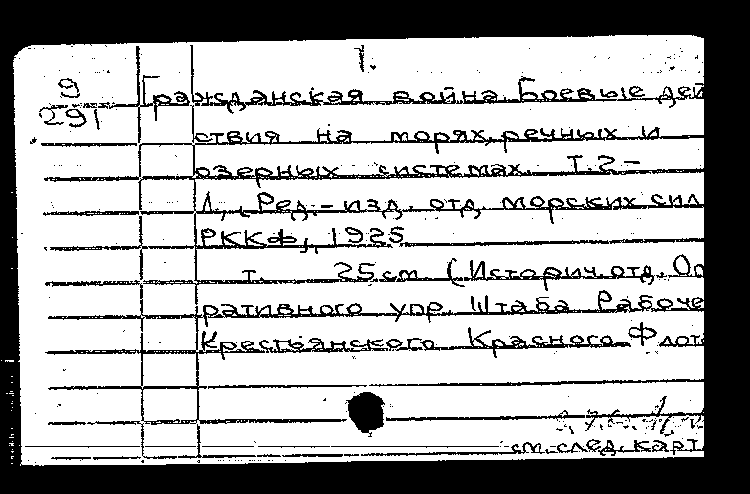 1.
9
291
Гражданская война. Боевые дей
ствия на морях, речных и
озерных системах. Т.2-
Л., Ред.-изд. отд. морских сил
РККФ, 1925
т. 25см. (Историч. отд. Оп
ративного упр. Штаба Рабоче
Крестьянского Красного Флот
см. след. карт.